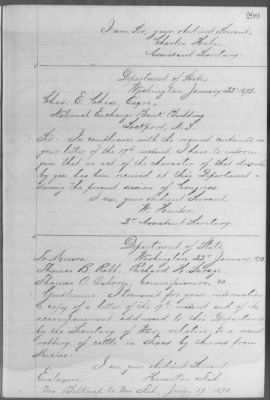 299
I am Sir, your obedient Servant,
Charles Hale
Assistant Secretary.
Department of State,
Washington January 22d 1873.
Chas. E. Chase, Esqre.
National Exchange Bank Building
Lockport, N.Y.
Sir: In compliance with the request contained in
your letter of the instant, I have to inform
you that no act of the character of that
by you has been received at this Department
during the present session of Congress
I am, your obedient Servant,
W. Hunter,
2d Assistant Secretary
Department of State
To Messrs. Washington 22d January, 1873
Thomas B. Robb, Richard H. Savage
Thomas O. Osborn, Commissioners, &c
Gentlemen: I transmit for your information
a copy of a letter of the instant and of the
accompaniment addressed to this Department
by the Secretary of War, relative to a recent
robbery of cattle in Texas by thieves from
Mexico.
I am, your obedient Servant,
Enclosure: Hamilton Fish.
Mr. Belknap to Mr. Fish, Jany. 1873.